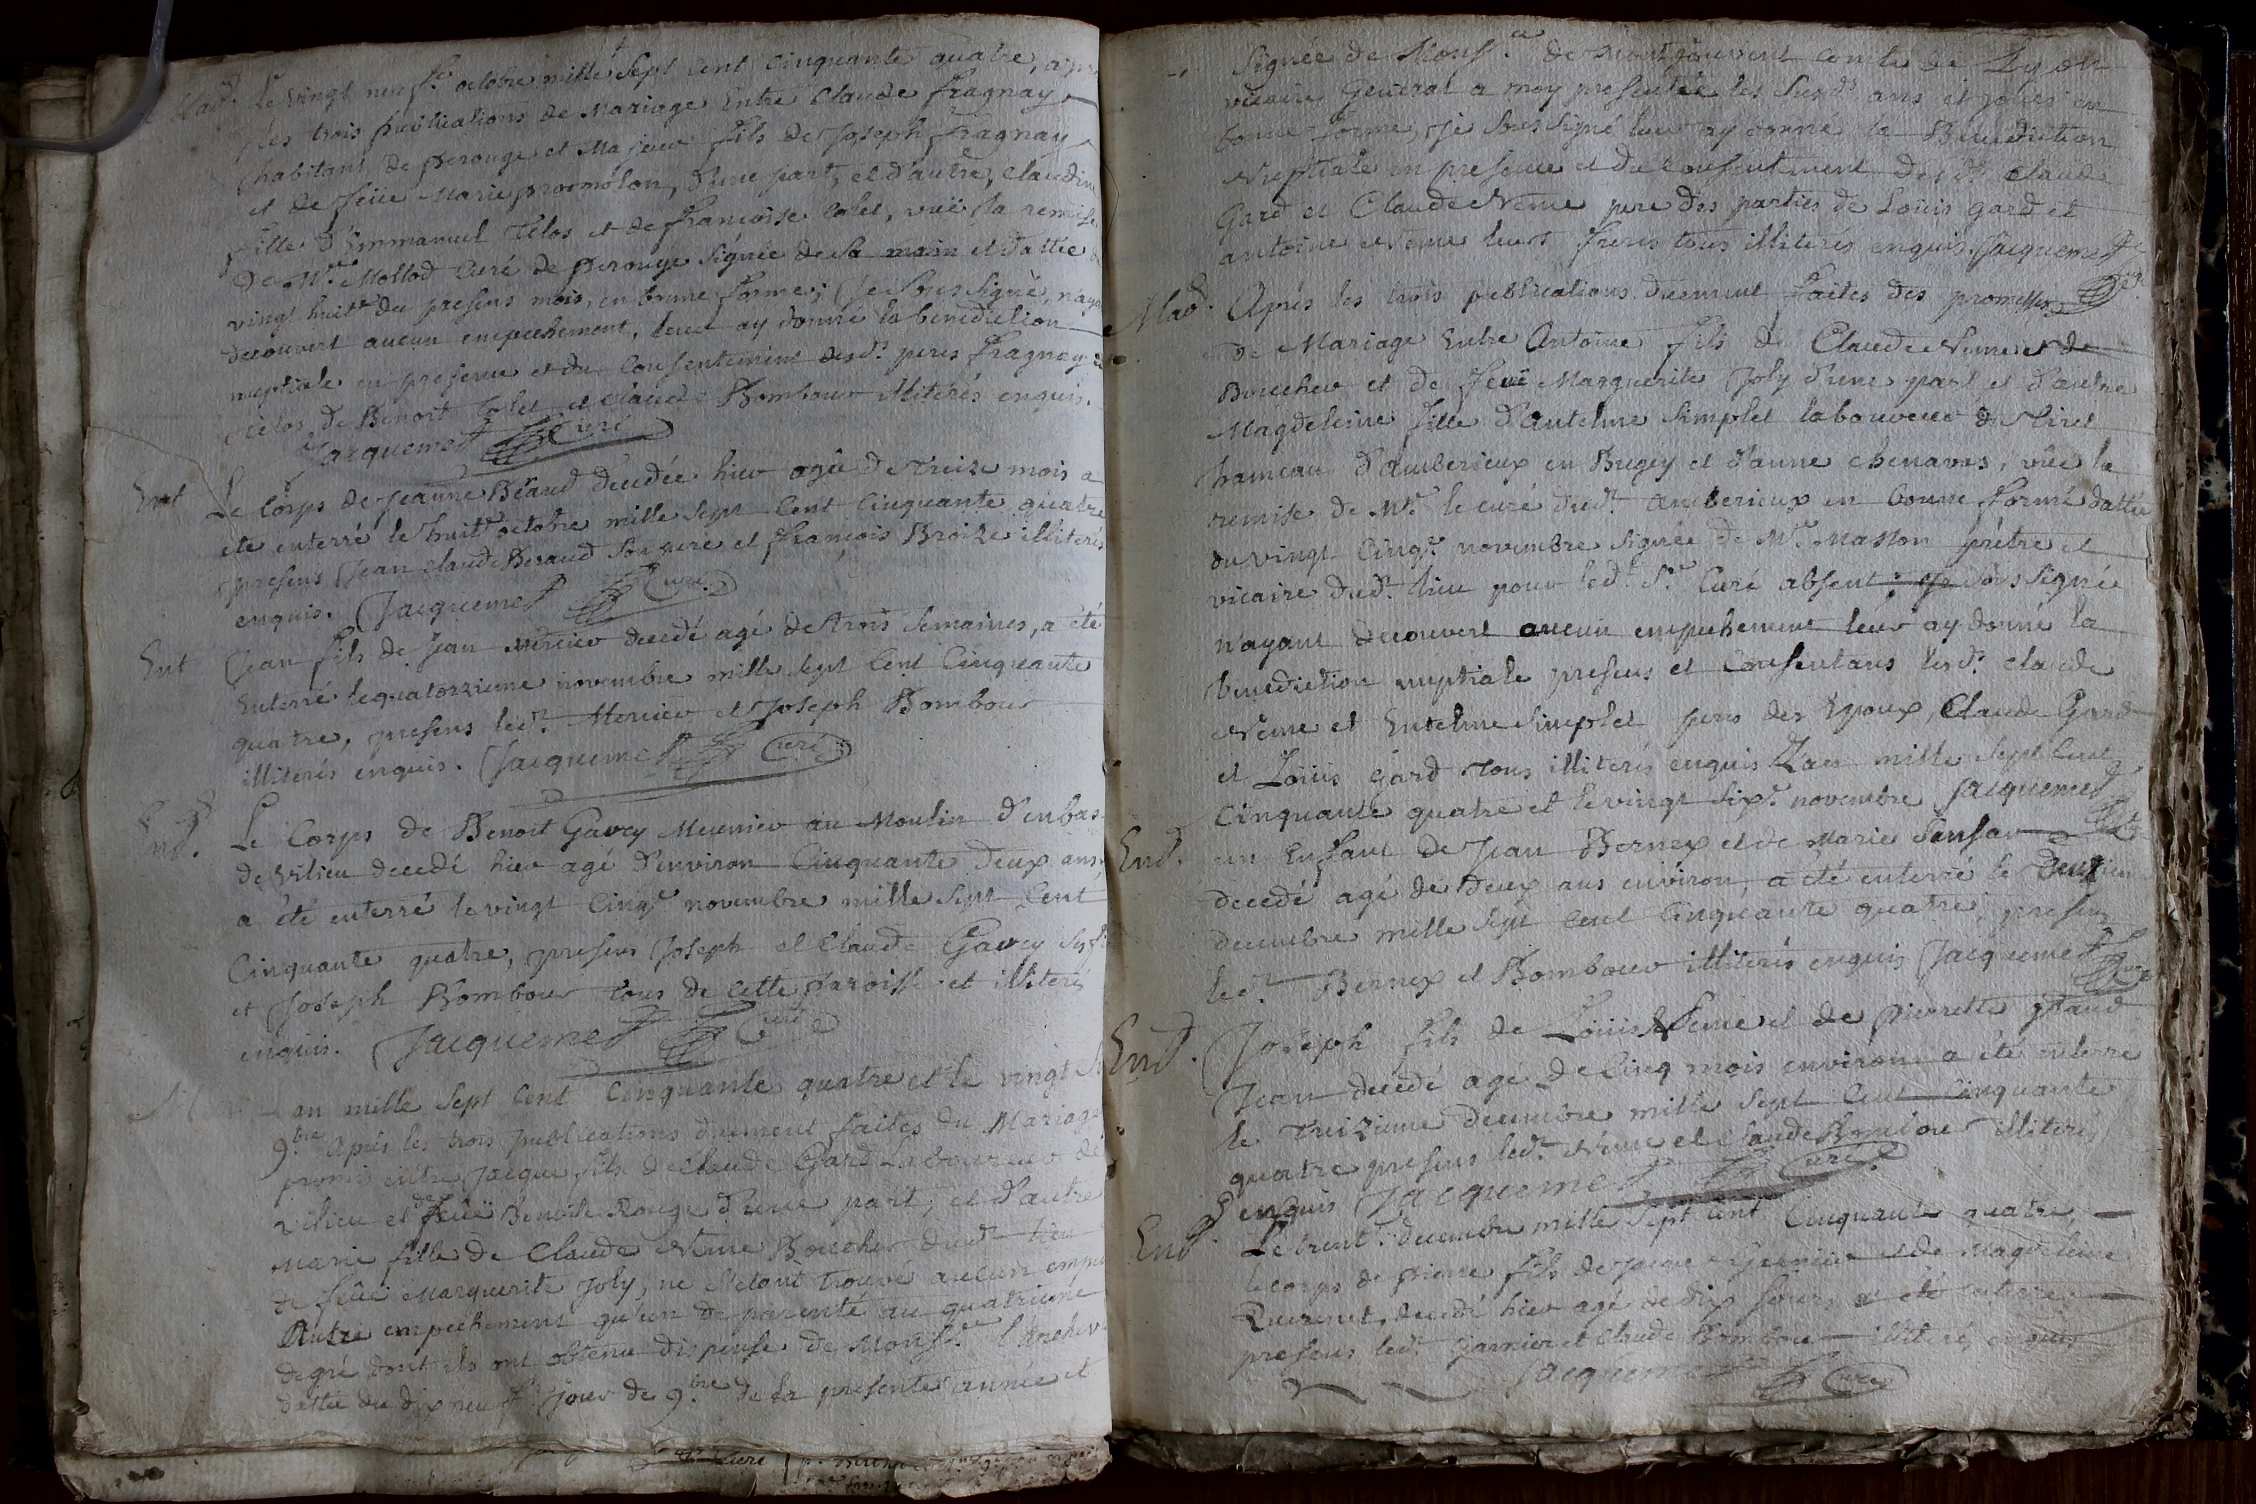 Mad. Le vingt neufe octobre mille sept cent cinquante quatre, apres
les trois publications de Mariage Entre Claude fragnay
habitant de Perouge et Majeur fils de Joseph fragnay
et de feüe Marie promolon, d'une part, et d'autre, Claudine
fille d'Emmanuel Telos et de françoise Colet, vuë la remise
de Mr. Mollod Curé de Perouge signée de sa main et dattée
vingt huite du presens mois, en bonne forme; Je soussigné, n'ayant
decouvert aucun empechement, leur ay donné la benediction
nuptiale en presence et du Consentement desd. peres fragnay et
Telos, de Benoit Colet et claude Bombour illiterés enquis.
Jacquemet Curé
Ent Le Corps de Jeanne Beraud decedée hier agée de treize mois a
eté enterré le huite octobre mille sept Cent Cinquante quatre
presens Jean claude Beraud son pere et françois Broize illiterés
enquis. Jacquemet Curé
Ent Jean fils de Jean Mercier decedé agé de trois semaines, a eté
Enterré le quatorzieme novembre mille sept Cent Cinquante
quatre, presens led. Mercier et Joseph Bombour
illiterés enquis. Jacquemet Curé
End. Le Corps de Benoit Gavey Meunier au Moulin d'enbas
de Vilieu decedé hier agé d'environ Cinquante deux ans,
a été enterré le vingt Cinqe novembre mille sept Cent
Cinquante quatre, presens Joseph et Claude Gavey
et Joseph Bombour tous de cette paroisse et illiterés
enquis. Jacquemet Curé
an mille sept Cent Cinquante quatre et le vingt
9bre Après les trois publications duement faites du Mariage
promis entre Jacque fils de Claude Gard Laboureur de
Vilieu et de feüe Benoite Rouge d'une part, et d'autre
Marie fille de Claude Neme Boucher dud. lieu
de feüe Marguerite Joly, ne s'étant trouvé aucun
Autre empechement qu'un de parenté au quatrieme
degré dont ils ont obtenu dispense de Monsr. l'Archev
dattée du dix neufe jour de 9bre de la presente année et
signée de Monsr. de Montjouvent Comte de Lyon
vicaire General a moy presentée les susd. ans et jours en
bonne forme, Je soussigné leur ay donné la Benediction
Nuptiale en presence et du consentement desd. Claude
Gard et Claude Neme pere des parties de Loüis gard et
antoine Neme leurs freres tous illiterés enquis. Jacquemet
Mad. Après les trois publications duement faites des promesses
de Mariage Entre Antoine fils de Claude Neme et de
Boucher et de feuë Marguerite Joly d'une part et d'autre
Magdeleine fille d'Antelme Simplet laboureur de Tiret
hameau d'Amberieux en Bugey et d'anne chenavas, vûe la
remise de Mr. le curé dud. amberieux en bonne forme dattée
du vingt Cinqe novembre signée de Mr. Masson prêtre et
vicaire dud. lieu pour led. Sr. Curé absent; je soussignée
N'ayant decouvert aucun empechement leur ay donné la
benediction nuptiale presens et consentans lesd. claude
Neme et Entelme Simplet peres des Epoux, Claude Gard
et Loüis gard tous illiterés enquis L'an mille sept Cent
Cinquante quatre et le vingt sixe novembre Jacquemet
End. un Enfant de Jean Bernex et de Marie Sansau
decedé agé de deux ans environ, a été enterré le deuxieme
decembre mille sept cent Cinquante quatre, presens
led. Bernex et Bombour illiterés enquis Jacquemet
End. Joseph fils de Loüis Neme et de pierrette
Jean decedé agé de Cinq mois environ a été enterré
le Treizieme decembre mille sept Cent Cinquante
quatre presens led. Neme et Claude Bombour illiterés
enquis Jacquemet Curé
End. Le trente decembre mille sept Cent Cinquante quatre,
le corps de Pierre fils de Garnier et de Magdeleine
decedé hier agé de dix jours a été enterré
presens led. Garnier et Claude Bombour illiterés enquis
Jacquemet Curé